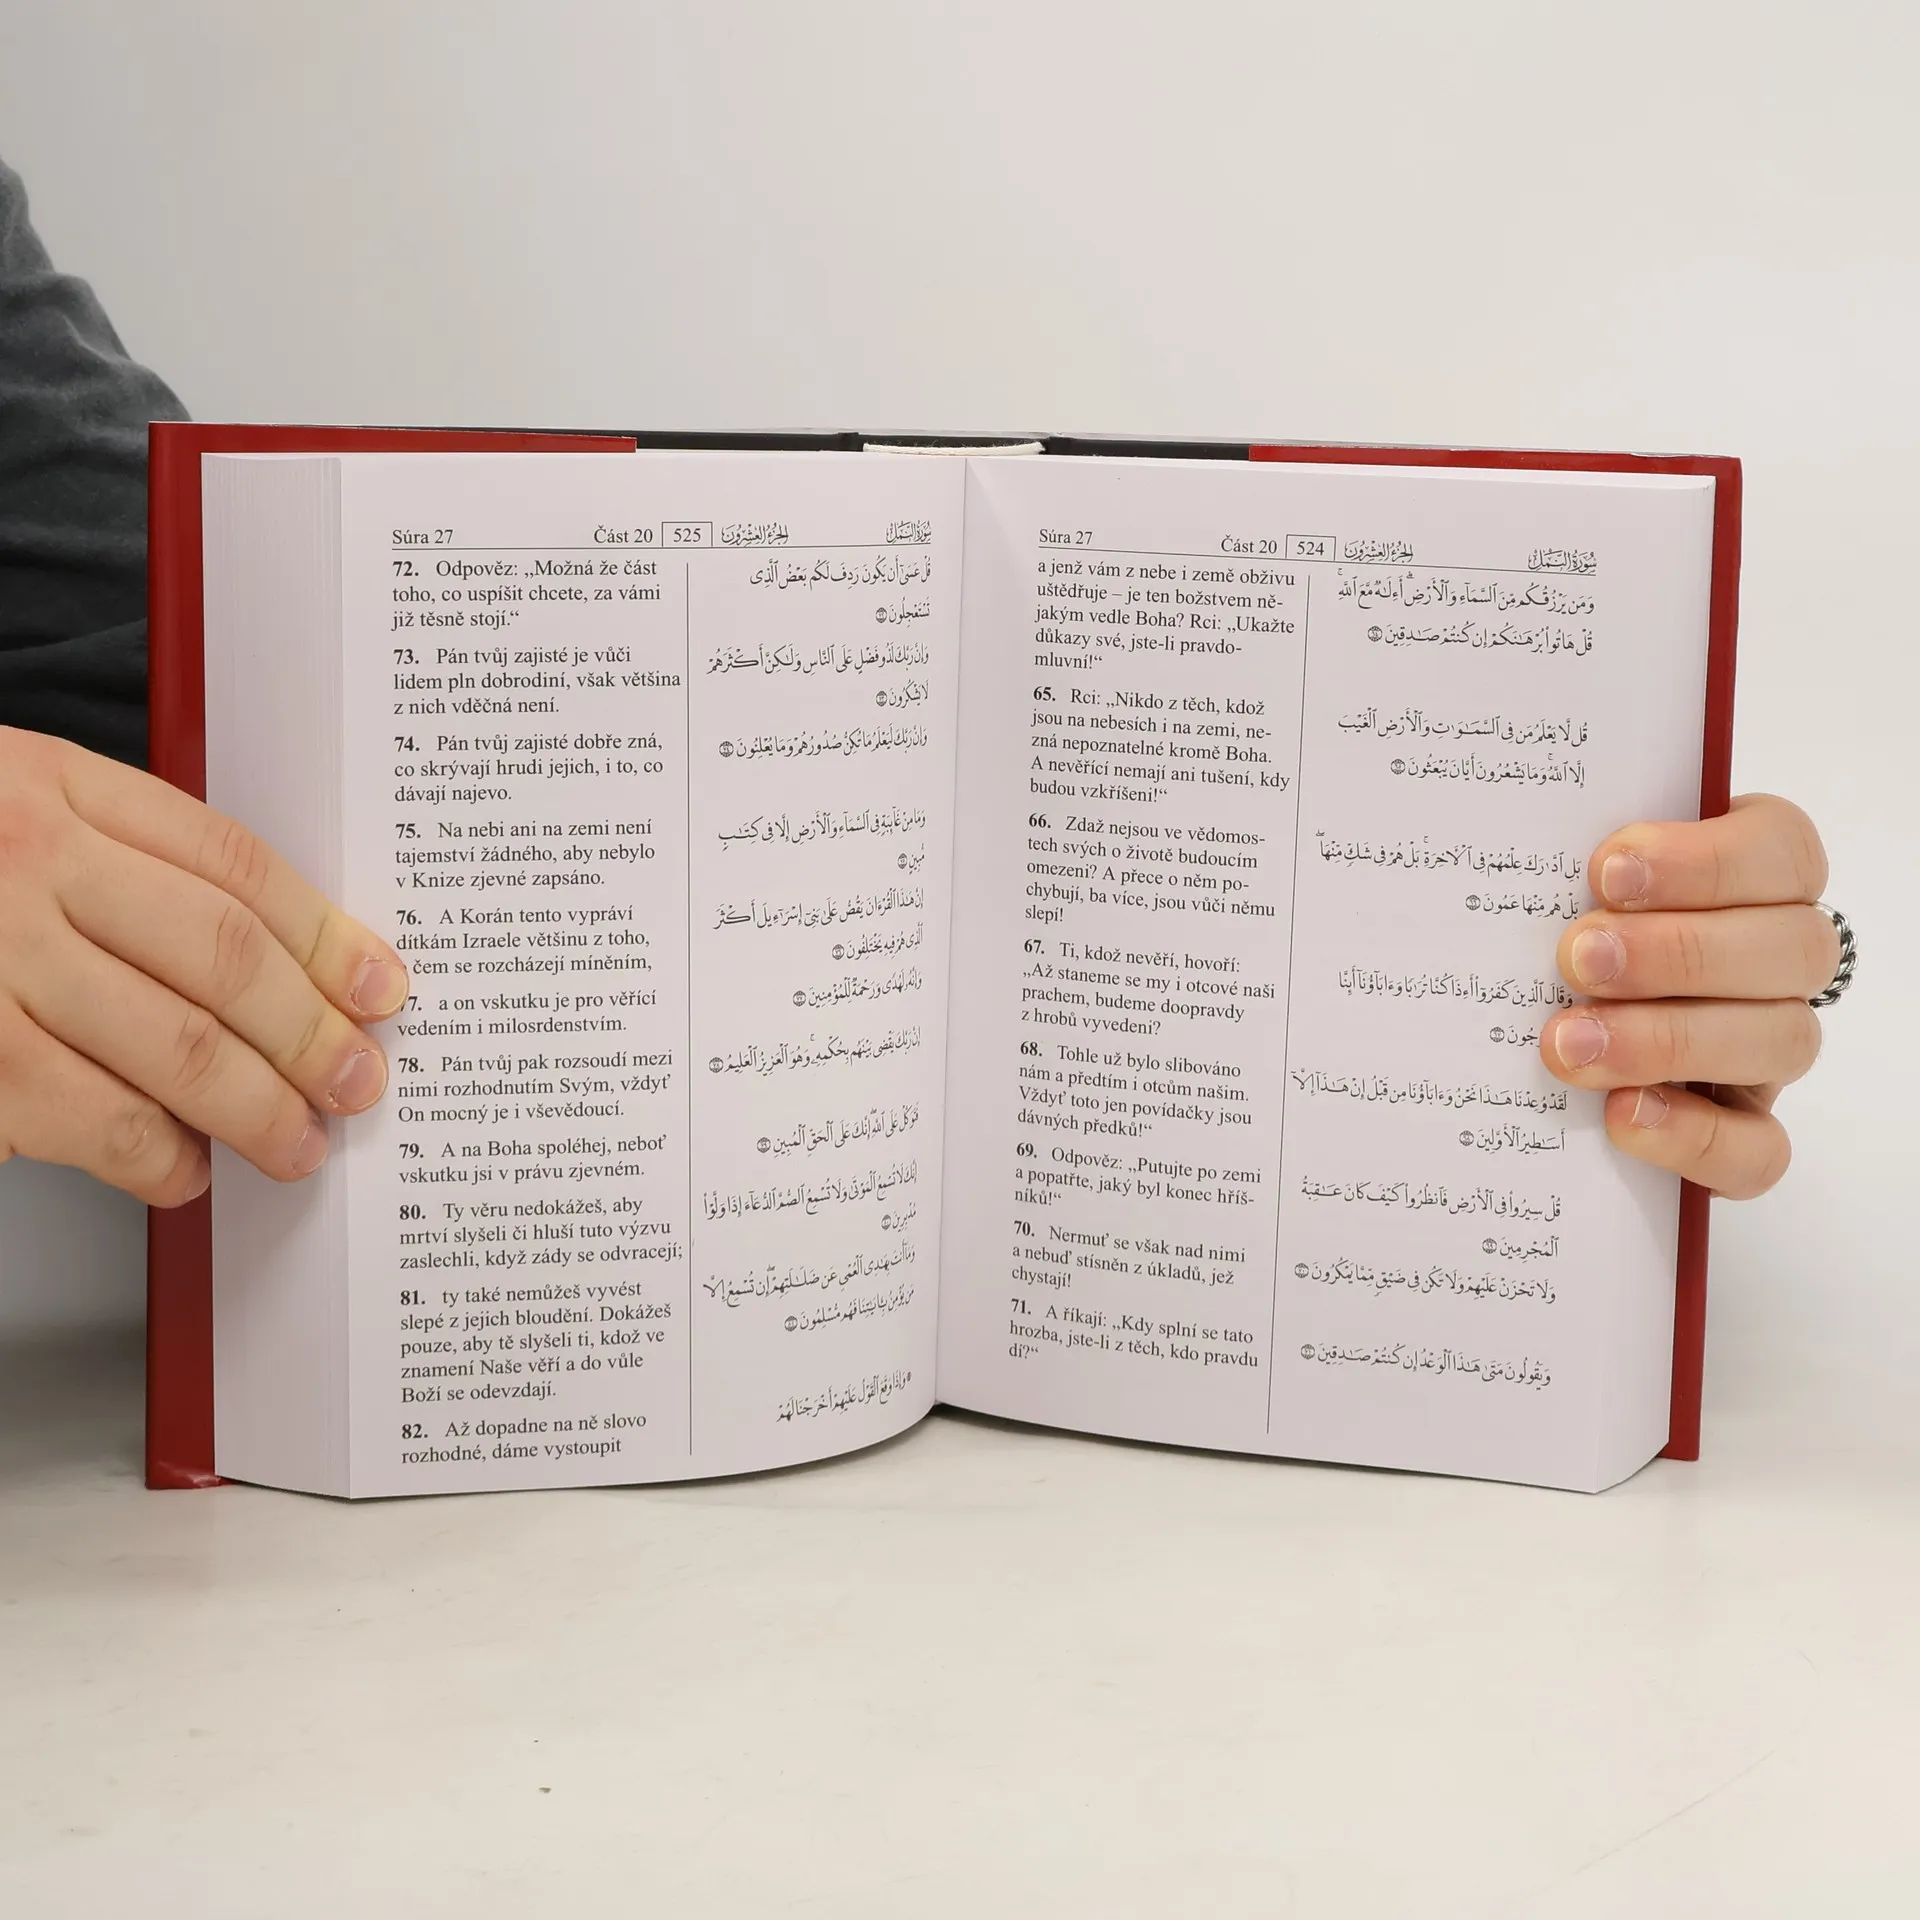 Súra 27 Část 20 524 الجزء العشرون سورة النمل
a jenž vám z nebe i země obživu
uštědřuje – je ten božstvem ně-
jakým vedle Boha? Rci: „Ukažte
důkazy své, jste-li pravdo-
mluvní!“
65. Rci: „Nikdo z těch, kdož
jsou na nebesích i na zemi, ne-
zná nepoznatelné kromě Boha.
A nevěřící nemají ani tušení, kdy
budou vzkříšeni!“
66. Zdaž nejsou ve vědomos-
tech svých o životě budoucím
omezeni? A přece o něm po-
chybují, ba více, jsou vůči němu
slepí!
67. Ti, kdož nevěří, hovoří:
„Až staneme se my i otcové naši
prachem, budeme doopravdy
z hrobů vyvedeni?
68. Tohle už bylo slibováno
nám a předtím i otcům našim.
Vždyť toto jen povídačky jsou
dávných předků!“
69. Odpověz: „Putujte po zemi
a popatřte, jaký byl konec hříš-
níků!“
70. Nermuť se však nad nimi
a nebuď stísněn z úkladů, jež
chystají!
71. A říkají: „Kdy splní se tato
hrozba, jste-li z těch, kdo pravdu
dí?“
وَمَن يَرْزُقُكُم مِّنَ ٱلسَّمَآءِ وَٱلْأَرْضِ ۗ أَءِلَـٰهٌ مَّعَ ٱللَّهِ ۚ
قُلْ هَاتُوا۟ بُرْهَـٰنَكُمْ إِن كُنتُمْ صَـٰدِقِينَ ٦٤
قُل لَّا يَعْلَمُ مَن فِى ٱلسَّمَـٰوَٰتِ وَٱلْأَرْضِ ٱلْغَيْبَ
إِلَّا ٱللَّهُ ۚ وَمَا يَشْعُرُونَ أَيَّانَ يُبْعَثُونَ ٦٥
بَلِ ٱدَّٰرَكَ عِلْمُهُمْ فِى ٱلْـَٔاخِرَةِ ۚ بَلْ هُمْ فِى شَكٍّ مِّنْهَا ۖ
بَلْ هُم مِّنْهَا عَمُونَ ٦٦
وَقَالَ ٱلَّذِينَ كَفَرُوٓا۟ أَءِذَا كُنَّا تُرَٰبًا وَءَابَآؤُنَآ أَئِنَّا
رَجُونَ ٦٧
لَقَدْ وُعِدْنَا هَـٰذَا نَحْنُ وَءَابَآؤُنَا مِن قَبْلُ إِنْ هَـٰذَآ إِلَّآ
أَسَـٰطِيرُ ٱلْأَوَّلِينَ ٦٨
قُلْ سِيرُوا۟ فِى ٱلْأَرْضِ فَٱنظُرُوا۟ كَيْفَ كَانَ عَـٰقِبَةُ
ٱلْمُجْرِمِينَ ٦٩
وَلَا تَحْزَنْ عَلَيْهِمْ وَلَا تَكُن فِى ضَيْقٍ مِّمَّا يَمْكُرُونَ ٧٠
وَيَقُولُونَ مَتَىٰ هَـٰذَا ٱلْوَعْدُ إِن كُنتُمْ صَـٰدِقِينَ ٧١
Súra 27 Část 20 525 الجزء العشرون سورة النمل
72. Odpověz: „Možná že část
toho, co uspíšit chcete, za vámi
již těsně stojí.“
73. Pán tvůj zajisté je vůči
lidem pln dobrodiní, však většina
z nich vděčná není.
74. Pán tvůj zajisté dobře zná,
co skrývají hrudi jejich, i to, co
dávají najevo.
75. Na nebi ani na zemi není
tajemství žádného, aby nebylo
v Knize zjevné zapsáno.
76. A Korán tento vypráví
dítkám Izraele většinu z toho,
čem se rozcházejí míněním,
7. a on vskutku je pro věřící
vedením i milosrdenstvím.
78. Pán tvůj pak rozsoudí mezi
nimi rozhodnutím Svým, vždyť
On mocný je i vševědoucí.
79. A na Boha spoléhej, neboť
vskutku jsi v právu zjevném.
80. Ty věru nedokážeš, aby
mrtví slyšeli či hluší tuto výzvu
zaslechli, když zády se odvracejí;
81. ty také nemůžeš vyvést
slepé z jejich bloudění. Dokážeš
pouze, aby tě slyšeli ti, kdož ve
znamení Naše věří a do vůle
Boží se odevzdají.
82. Až dopadne na ně slovo
rozhodné, dáme vystoupit
قُلْ عَسَىٰٓ أَن يَكُونَ رَدِفَ لَكُم بَعْضُ ٱلَّذِى
تَسْتَعْجِلُونَ ٧٢
وَإِنَّ رَبَّكَ لَذُو فَضْلٍ عَلَى ٱلنَّاسِ وَلَـٰكِنَّ أَكْثَرَهُمْ
لَا يَشْكُرُونَ ٧٣
وَإِنَّ رَبَّكَ لَيَعْلَمُ مَا تُكِنُّ صُدُورُهُمْ وَمَا يُعْلِنُونَ ٧٤
وَمَا مِنْ غَآئِبَةٍ فِى ٱلسَّمَآءِ وَٱلْأَرْضِ إِلَّا فِى كِتَـٰبٍ
مُّبِينٍ ٧٥
إِنَّ هَـٰذَا ٱلْقُرْءَانَ يَقُصُّ عَلَىٰ بَنِىٓ إِسْرَٰٓءِيلَ أَكْثَرَ
ٱلَّذِى هُمْ فِيهِ يَخْتَلِفُونَ ٧٦
وَإِنَّهُۥ لَهُدًى وَرَحْمَةٌ لِّلْمُؤْمِنِينَ ٧٧
إِنَّ رَبَّكَ يَقْضِى بَيْنَهُم بِحُكْمِهِۦ ۚ وَهُوَ ٱلْعَزِيزُ ٱلْعَلِيمُ ٧٨
فَتَوَكَّلْ عَلَى ٱللَّهِ ۖ إِنَّكَ عَلَى ٱلْحَقِّ ٱلْمُبِينِ ٧٩
إِنَّكَ لَا تُسْمِعُ ٱلْمَوْتَىٰ وَلَا تُسْمِعُ ٱلصُّمَّ ٱلدُّعَآءَ إِذَا وَلَّوْا۟
مُدْبِرِينَ ٨٠
وَمَآ أَنتَ بِهَـٰدِى ٱلْعُمْىِ عَن ضَلَـٰلَتِهِمْ ۖ إِن تُسْمِعُ إِلَّا
مَن يُؤْمِنُ بِـَٔايَـٰتِنَا فَهُم مُّسْلِمُونَ ٨١
۞ وَإِذَا وَقَعَ ٱلْقَوْلُ عَلَيْهِمْ أَخْرَجْنَا لَهُمْ